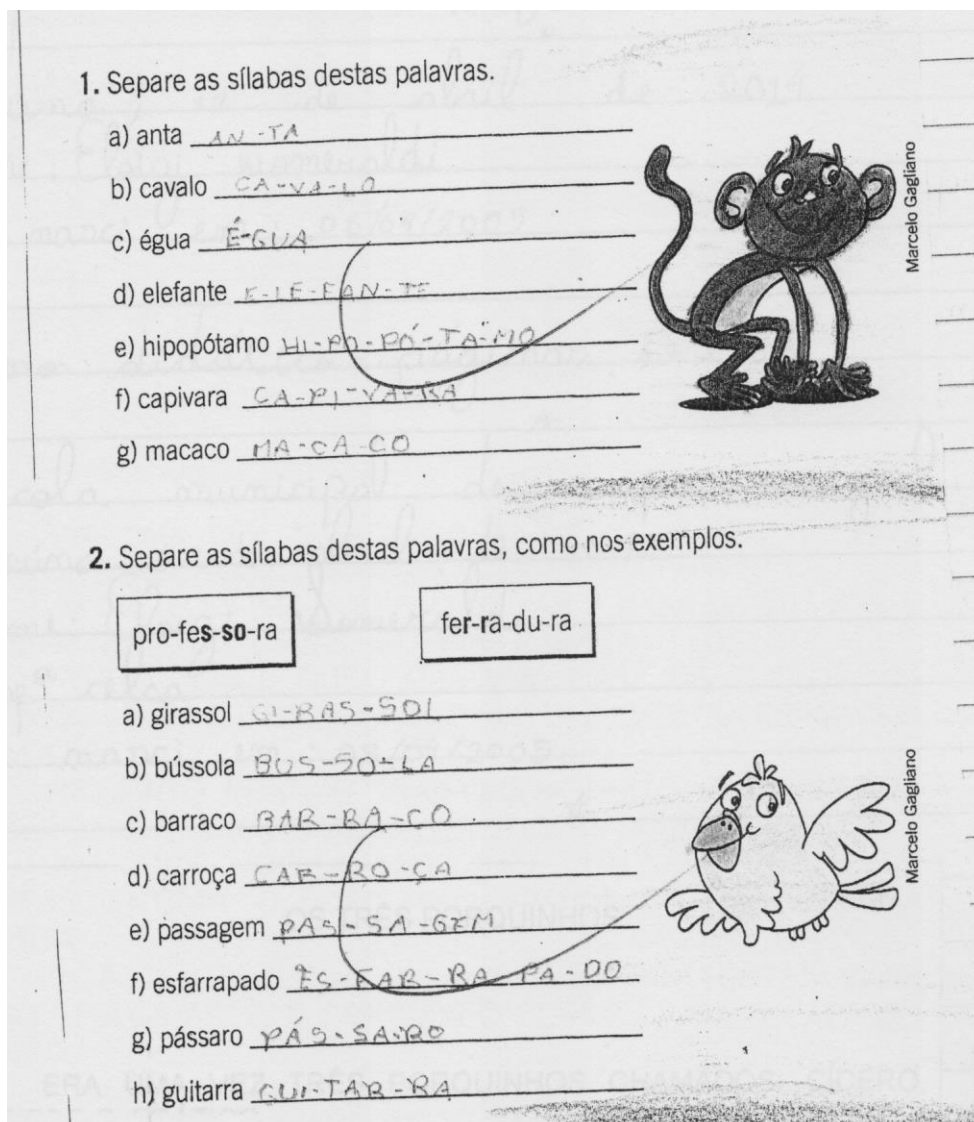 1. Separe as sílabas destas palavras.
a) anta AN-TA
b) cavalo CA-VA-LO
c) égua É-GUA
d) elefante E-LE-FAN-TE
e) hipopótamo HI-PO-PÓ-TA-MO
f) capivara CA-PI-VA-RA
g) macaco MA-CA-CO
Marcelo Gagliano
2. Separe as sílabas destas palavras, como nos exemplos.
pro-fes-so-ra fer-ra-du-ra
a) girassol GI-RAS-SOL
b) bússola BUS-SO-LA
c) barraco BAR-RA-CO
d) carroça CAR-RO-ÇA
e) passagem PAS-SA-GEM
f) esfarrapado ES-FAR-RA-PA-DO
g) pássaro PÁS-SA-RO
h) guitarra GUI-TAR-RA
Marcelo Gagliano
OS TRÊS PORQUINHOS
ERA UMA VEZ TRÊS PORQUINHOS CHAMADOS CÍCERO